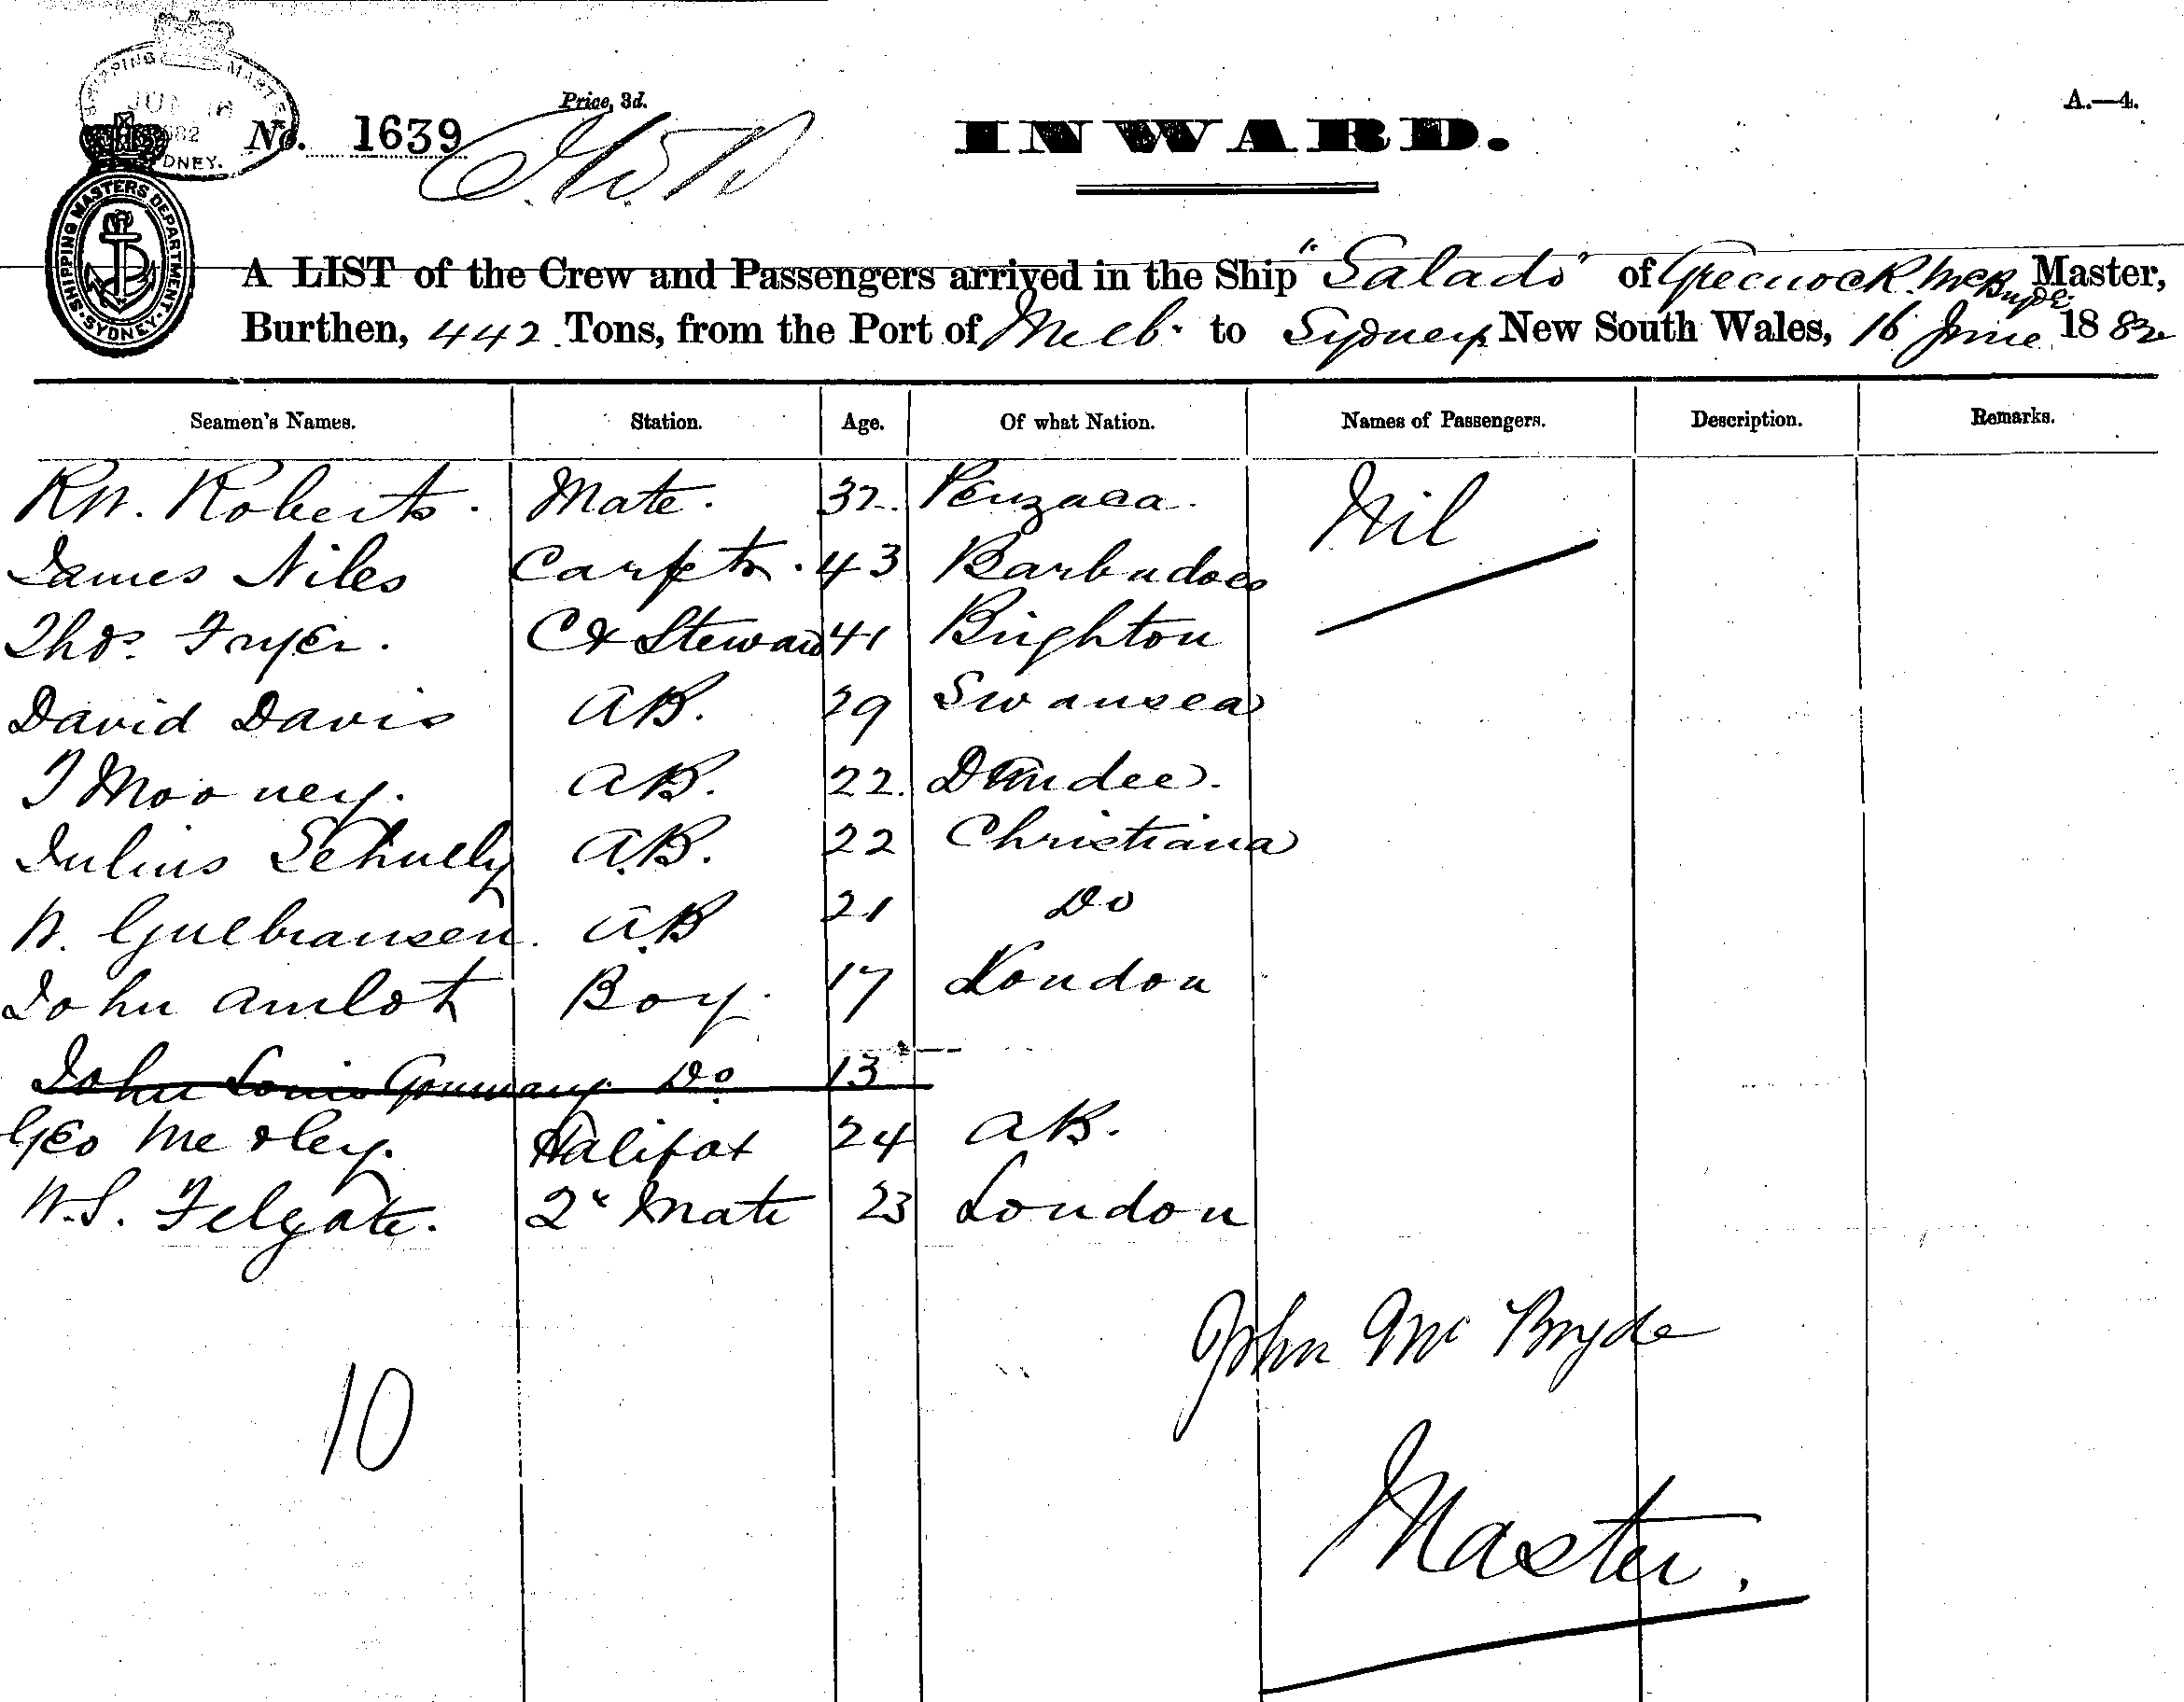 SHIPPING MASTER
JUN 16
1882
SYDNEY.
Price, 3d.
A.—4.
No. 1639
INWARD.
SHIPPING MASTERS DEPARTMENT · SYDNEY ·
A LIST of the Crew and Passengers arrived in the Ship "Salado" of Greenock. McBryde Master,
Burthen, 442 Tons, from the Port of Melb. to Sydney, New South Wales, 16 June 1882
Seamen's Names. Station. Age. Of what Nation. Names of Passengers. Description. Remarks.
R W. Roberts. Mate. 32 Nil
James Niles Carpetr. 43 Barbadoes
Thos. Fryer. C & Steward 41 Brighton
David Davis AB. 29 Swansea
J Mooney. AB. 22. Dundee.
Julius A.B. 22 Christiana
N. Gulbransen. A.B 21 Do
John Amlot Boy. 17 London
John Louis Do 13
Geo Halifax 24 AB.
W.S. Felgate. 2d Mate 23 London
John Mc Bryde
10
Master.